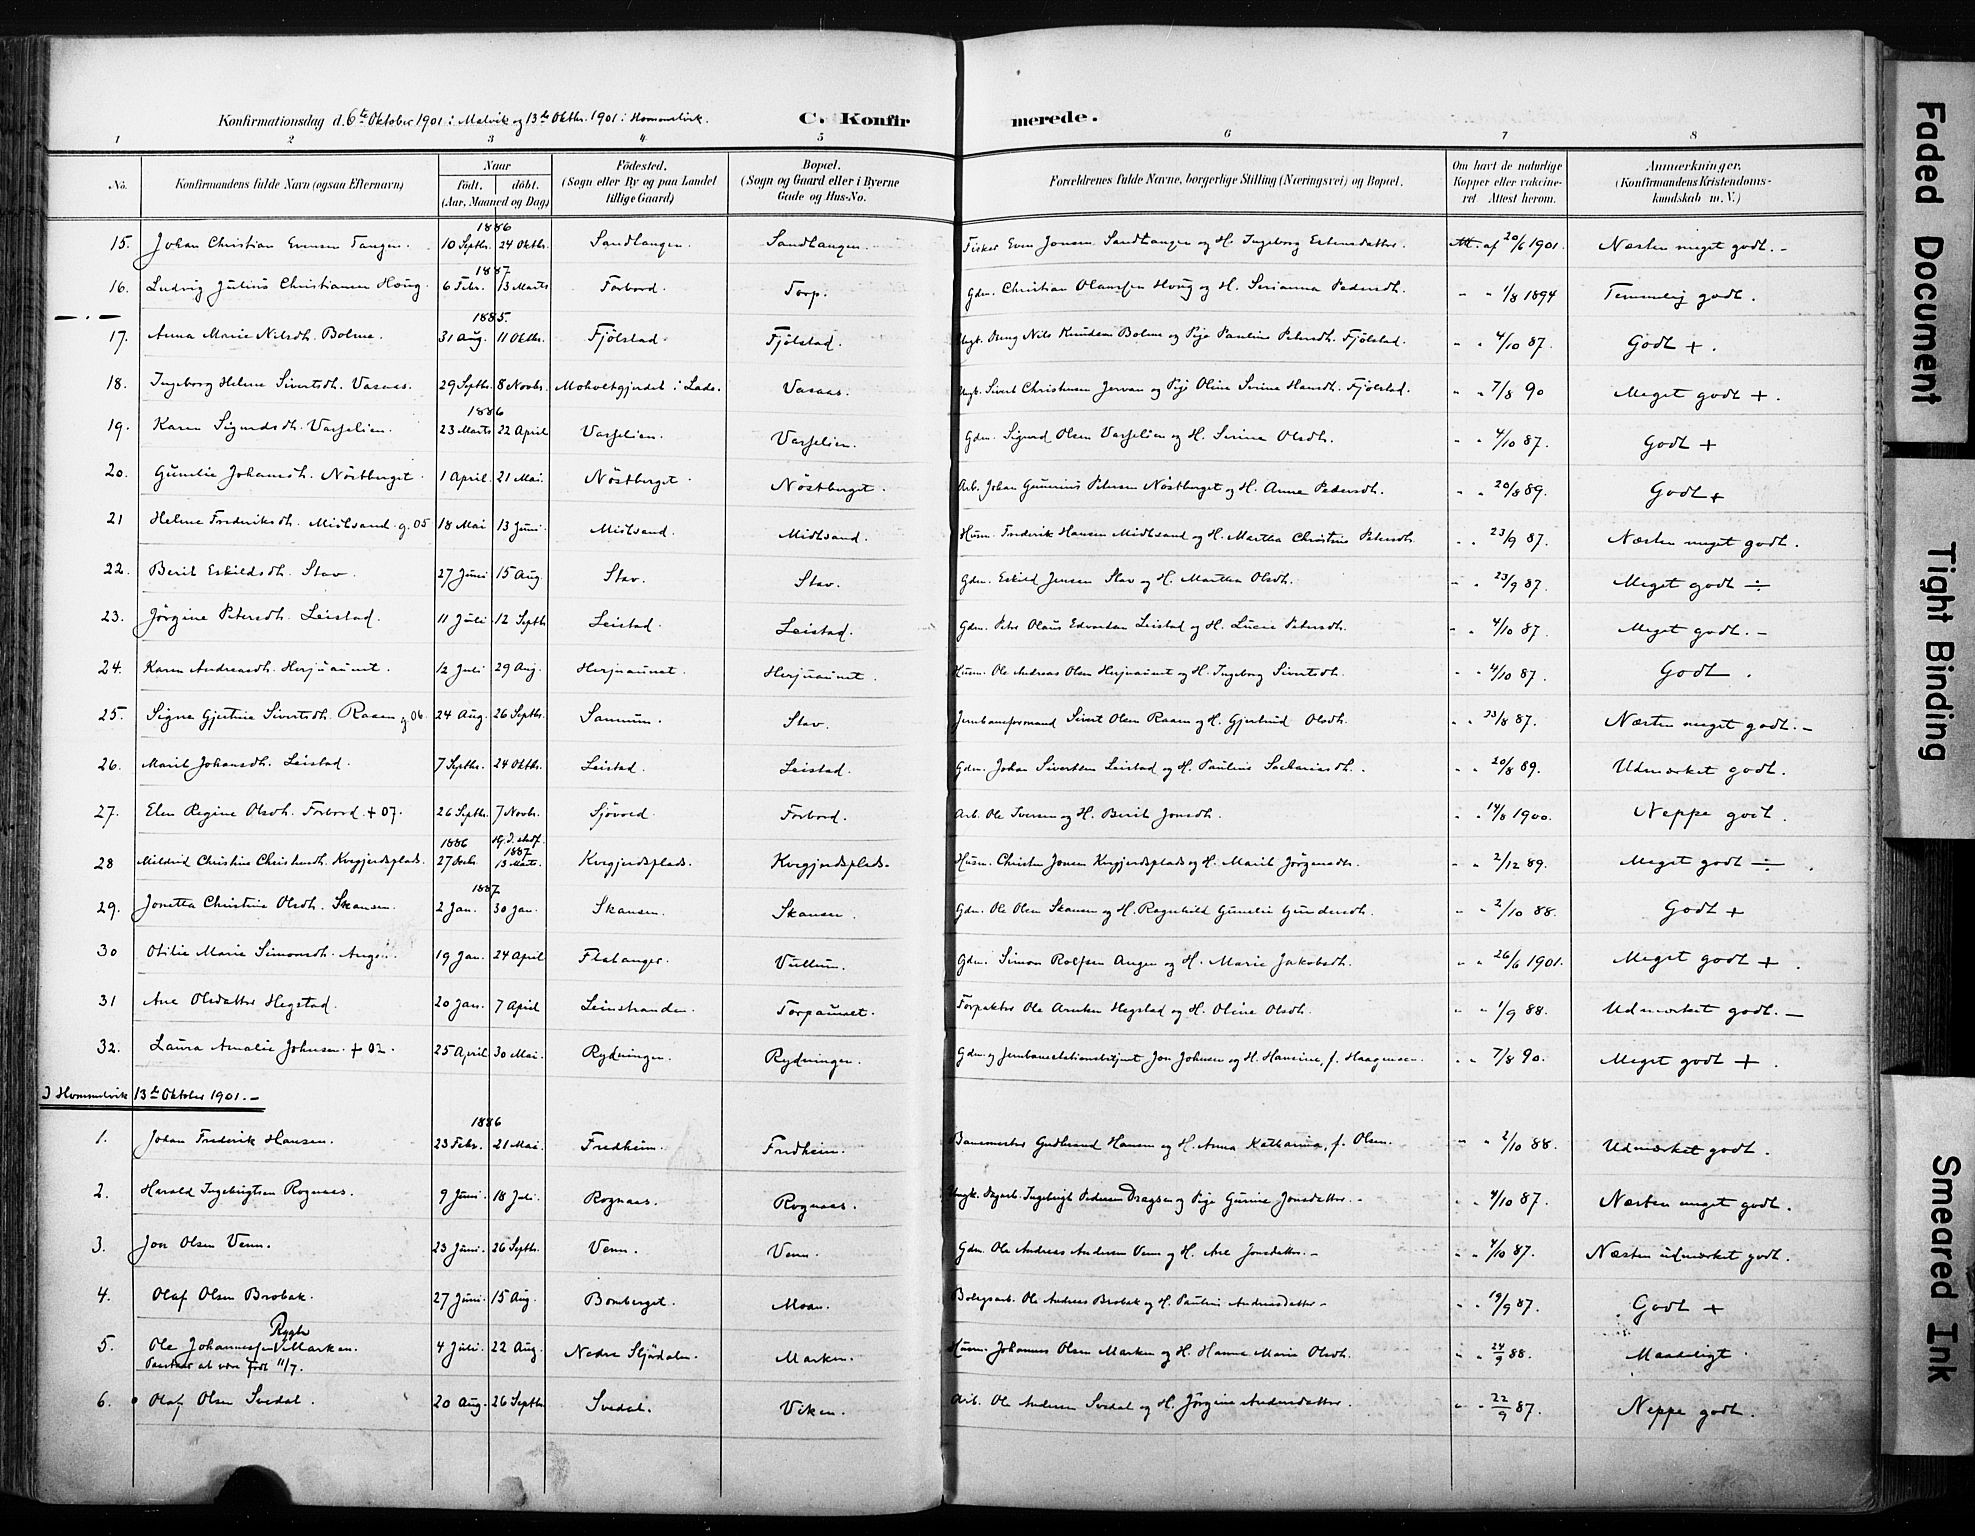 Konfirmationsdag d. 6te Oktober 1901 i Malvik og 13de Oktbr. 1901 i Hommelvik. C. Konfirmerede.
1 2 3 4 5 6 7 8
No. Konfirmandens fulde Navn (ogsaa Efternavn) Naar født. døbt. (Aar, Maaned og Dag) Fødested. (Sogn eller By og paa Landet tillige Gaard) Bopæl. (Sogn og Gaard eller i Byerne Gade og Hus-No. Forældrenes fulde Navne, borgerlige Stilling (Næringsvei) og Bopæl. Om havt de naturlige Kopper eller vakcineret Attest herom. Anmærkninger. (Konfirmandens Kristendomskundskab m. V.)
1886
15. Johan Christian Evensen Tangen. 10 Septbr. 24 Oktbr. Sandtangen. Sandtangen. Fisker Even Jonsen Sandtangen og H. Ingeborg Estensdatter. Att. af 20/6 1901. Næsten meget godt. -
1887
16. Ludvig Julius Christiansen Houg. 6 Febr. 13 Marts Forbord. Torp. Gdm. Christian Olaussen Houg og H. Serianna Pedersdt. " " 1/8 1894 Temmelig godt.
1885.
17. Anna Marie Nilsdt. Bolme. 31 Aug. 11 Oktbr. Fjølstad. Fjølstad. Ungk. Nils Knudsen Bolme og Pige Pauline Petersdt. Fjølstad. " " 4/10 87. Godt +.
18. Ingeborg Heline Sivertsdt. Vasaas. 29 Septbr. 8 Novbr. Moholtgjerdet i Lade. Vasaas. Ungk. Sivert Christensen Jervan og Pige Oline Serine Hansdt. Fjølstad. " " 7/8 90 Meget godt +.
1886
19. Karen Sigurdsdt. Vasselien. 23 Marts 22 April Vasselien. Vasselien. Gdm. Sigurd Olsen Vasselien og H. Serine Olsdt. " " 4/10 87. Godt +
20. Gunelie Johansdt. Nøstberget. 1 April. 21 Mai. Nøstberget. Nøstberget. Arb. Johan Gunerius Petersen Nøstberget og H. Anne Pedersdt. " " 20/8 89. Godt +
21 Heline Frederiksdt. Midtsand. g. 05 18 Mai 13 Juni. Midtsand. Midtsand. Husm. Frederik Hansen Midtsand og H. Martha Christine Petersdt. " " 23/9 87. Næsten meget godt.
22. Berit Eskildsdt. Stav. 27 Juni 15 Aug. Stav. Stav. Gdm. Eskild Jensen Stav og H. Martha Olsdt. " " 23/9 87. Meget godt ÷
23. Jørgine Petersdt. Leistad. 11 Juli 12 Septbr. Leistad. Leistad. Gdm. Peter Olaus Edvardsen Leistad og H. Lucie Petersdt. " " 4/10 87. Meget godt. -
24. Karen Andreasdt. Herjuaunet. 12 Juli 29 Aug. Herjuaunet. Herjuaunet. Husm. Ole Andreas Olsen Herjuaunet og H. Ingeborg Sivertsdt. " " 4/10 87. Godt.
25. Signe Gjertine Sivertsdt. Raaen g 06. 24 Aug. 26 Septbr. Stav. Jernbaneformand Sivert Olsen Raaen og H. Gjertrud Olsdt. " " 23/8 87. Næsten meget godt. -
26. Marit Johansdt. Leistad. 7 Septbr. 24 Oktbr. Leistad. Leistad. Gdm. Johan Sivertsen Leistad og H. Pauline Sakariasdt. " " 20/8 89. Udmærket godt.
27. Elen Regine Olsdt. Forbord. + 07. 26 Septbr. 7 Novbr. Sjøvold. Forbord. Arb. Ole Iversen og H. Berit Jonsdt. " " 14/8 1900. Neppe godt.
1886 1887
28 Mildrid Christine Christensdt. Kvegjerdsplads. 27 Decbr. 13 Marts. Kvegjerdsplads. Kvegjerdsplads. Husm. Christen Jonsen Kvegjerdsplads og H. Marit Jørgensdtr. " " 2/12 89. Meget godt ÷
1887
29. Jonetta Christine Olsdt. Skansen. 2 Jan. 30 Jan. Skansen. Skansen. Gdm. Ole Olsen Skansen og H. Ragnhild Gunelie Gundersdt. " " 2/10 88. Godt +
30 Otilie Marie Simonsdt. 19 Jan. 24 April Flatanger. Vullum. Gdm. Simon Rolfsen Angen og H. Marie Jakobsdt. " " 26/6 1901. Meget godt +.
31 Ane Olsdatter Hegstad. 20 Jan. 7 April Leinstranden. Torpaunet. Forpakter Ole Arntsen Hegstad og H. Oline Olsdt. " " 1/9 88. Udmærket godt. -
32. Laura Amalie Johnsen. + 02. 25 April 30 Mai. Rydningen. Rydningen. Gdm. og Jernbanestationsbetjent Jon Johnsen og H. Hansine, f. Haagensen. " " 7/8 90. Meget godt +.
I Hommelvik 13de Oktober 1901. -
1886
1. Johan Frederik Hansen. 23 Febr. 21 Mai. Fredheim. Fredheim. Banemester Gudbrand Hansen og H. Anna Katharina, f. Olsen. " " 2/10 88. Udmærket godt.
2. Harald Ingebrigtsen Rognaas. 9 Juni. 18 Juli. Rognaas. Rognaas. Ungk. Ingebrigt Pedersen Dragsen og Pige Gurine Jonsdatter. - " " 4/10 87. Næsten meget godt.
3. Jon Olsen Venn. 23 Juni. 26 Septbr. Venn. Venn. Gdm. Ole Andreas Andersen Venn og H. Ane Jonsdatter. - " " 4/10 87. Næsten udmærket godt.
4. Olaf Olsen Brobak. 27 Juni. 15 Aug. Bomberget. Moan. Ole Andreas Brobak og H. Pauline Andreasdatter - " " 19/9 87. Godt +
Rygh
5. Ole Johannessen Marken. 4 Juli. 22 Aug. Nedre Stjørdalen. Marken. Husm. Johannes Olsen Marken og H. Hanna Marie Olsdt. " " 24/9 88. Maadeligt.
Paastaar at være født 11/7.
6. Olaf Olsen Svedal. 20 Aug. 26 Septbr. Svedal. Viken. Arb. Ole Andersen Svedal og H. Jørgine Andersdatter. " " 22/9 87. Neppe godt.
Faded Document
Tight Binding
Smeared Ink